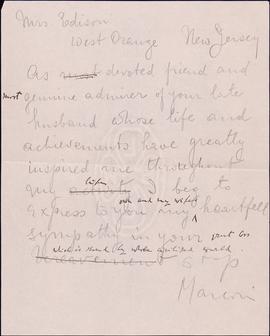 Mrs. Edison
West Orange New Jersey
As most devoted friend and
most genuine admirer of your late
husband whose life and
achievements have greatly
inspired me throughout
my life I beg to
own and my wife's
express to you my heartfelt
sympathy in your great loss
which is shared by whole civilized world
bereavement stop
Marconi